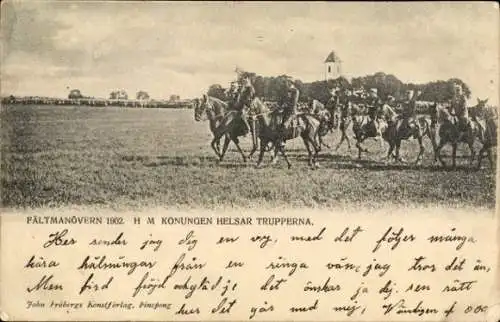 FÄLTMANÖVERN 1902. H M KONUNGEN HELSAR TRUPPERNA.
Her sender jag dig en vy, med det följer många
kära hälsningar från en ringa vän, jag tror det än,
Men bird fröjd och glad, det önskar jag dig, sen rätt
hur det går med mej,
John Fröbergs Konstförlag, Finspong